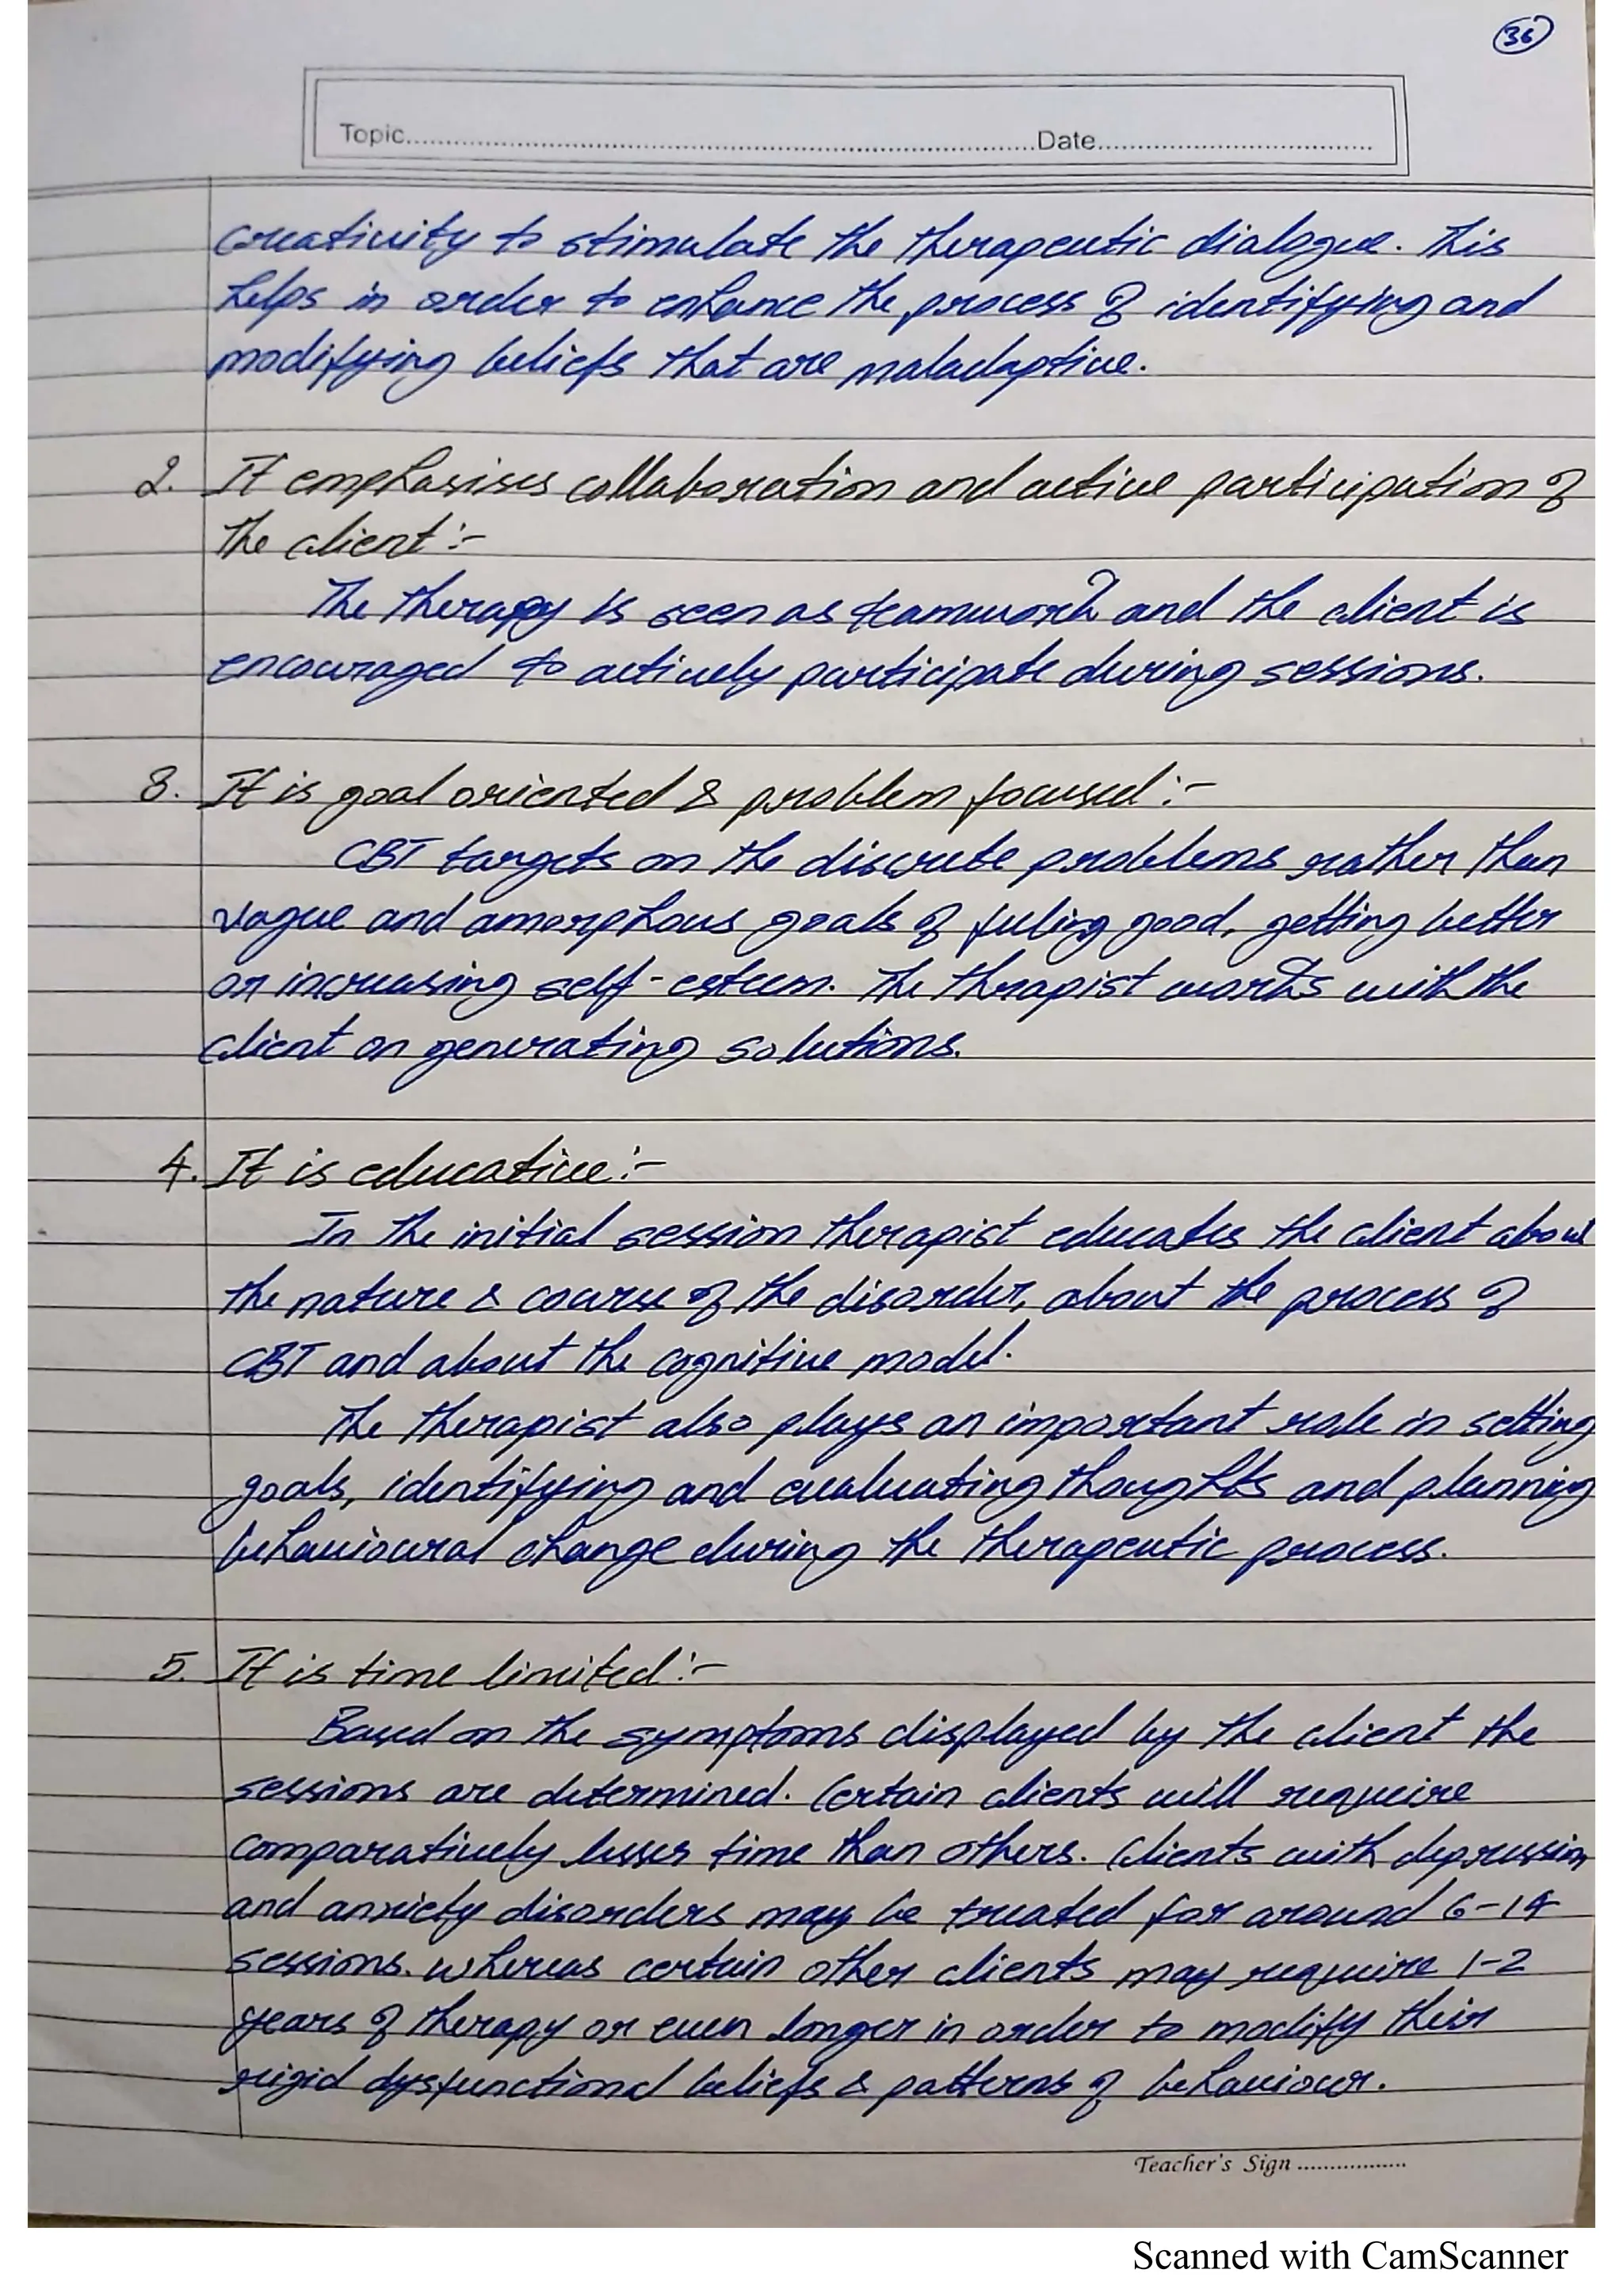 36
Topic..........Date..........
creativity to stimulate the therapeutic dialogue. This
helps in order to enhance the process of identifying and
modifying beliefs that are maladaptive.
2. It emphasises collaboration and active participation of
the client :-
The therapy is seen as teamwork and the client is
encouraged to actively participate during sessions.
3. It is goal oriented & problem focused :-
CBT targets on the discrete problems rather than
vague and amorphous goals of feeling good, getting better
or increasing self-esteem. The therapist works with the
client on generating solutions.
4. It is educative :-
In the initial session therapist educates the client about
the nature & course of the disorder, about the process of
CBT and about the cognitive model.
The therapist also plays an important role in setting
goals, identifying and evaluating thoughts and planning
behavioural change during the therapeutic process.
5. It is time limited :-
Based on the symptoms displayed by the client the
sessions are determined. Certain clients will require
comparatively lesser time than others. Clients with depression
and anxiety disorders may be treated for around 6-14
sessions. whereas certain other clients may require 1-2
years of therapy or even longer in order to modify their
rigid dysfunctional beliefs & patterns of behaviour.
Teacher's Sign ..........
Scanned with CamScanner